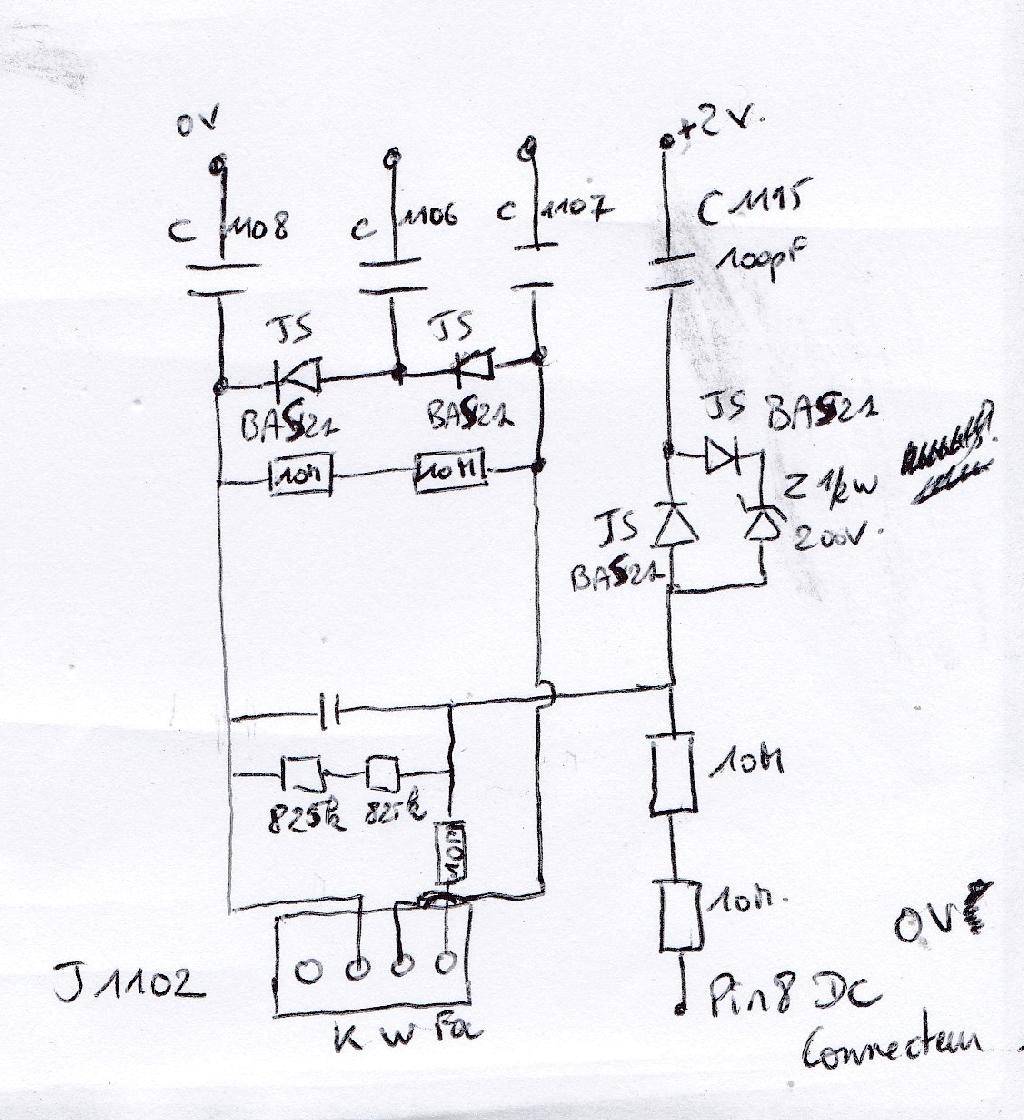 0V
+2V.
C 1108
C 1106
C 1107
C 1115
100pF
JS
JS
BAS21
BAS21
JS BAS21
10M
10M
Z 1/2W
200V.
JS
BAS21
10M
825k
825k
10M
10M.
0V
J1102
Pin 8 DC
Connecteur
K W Fa